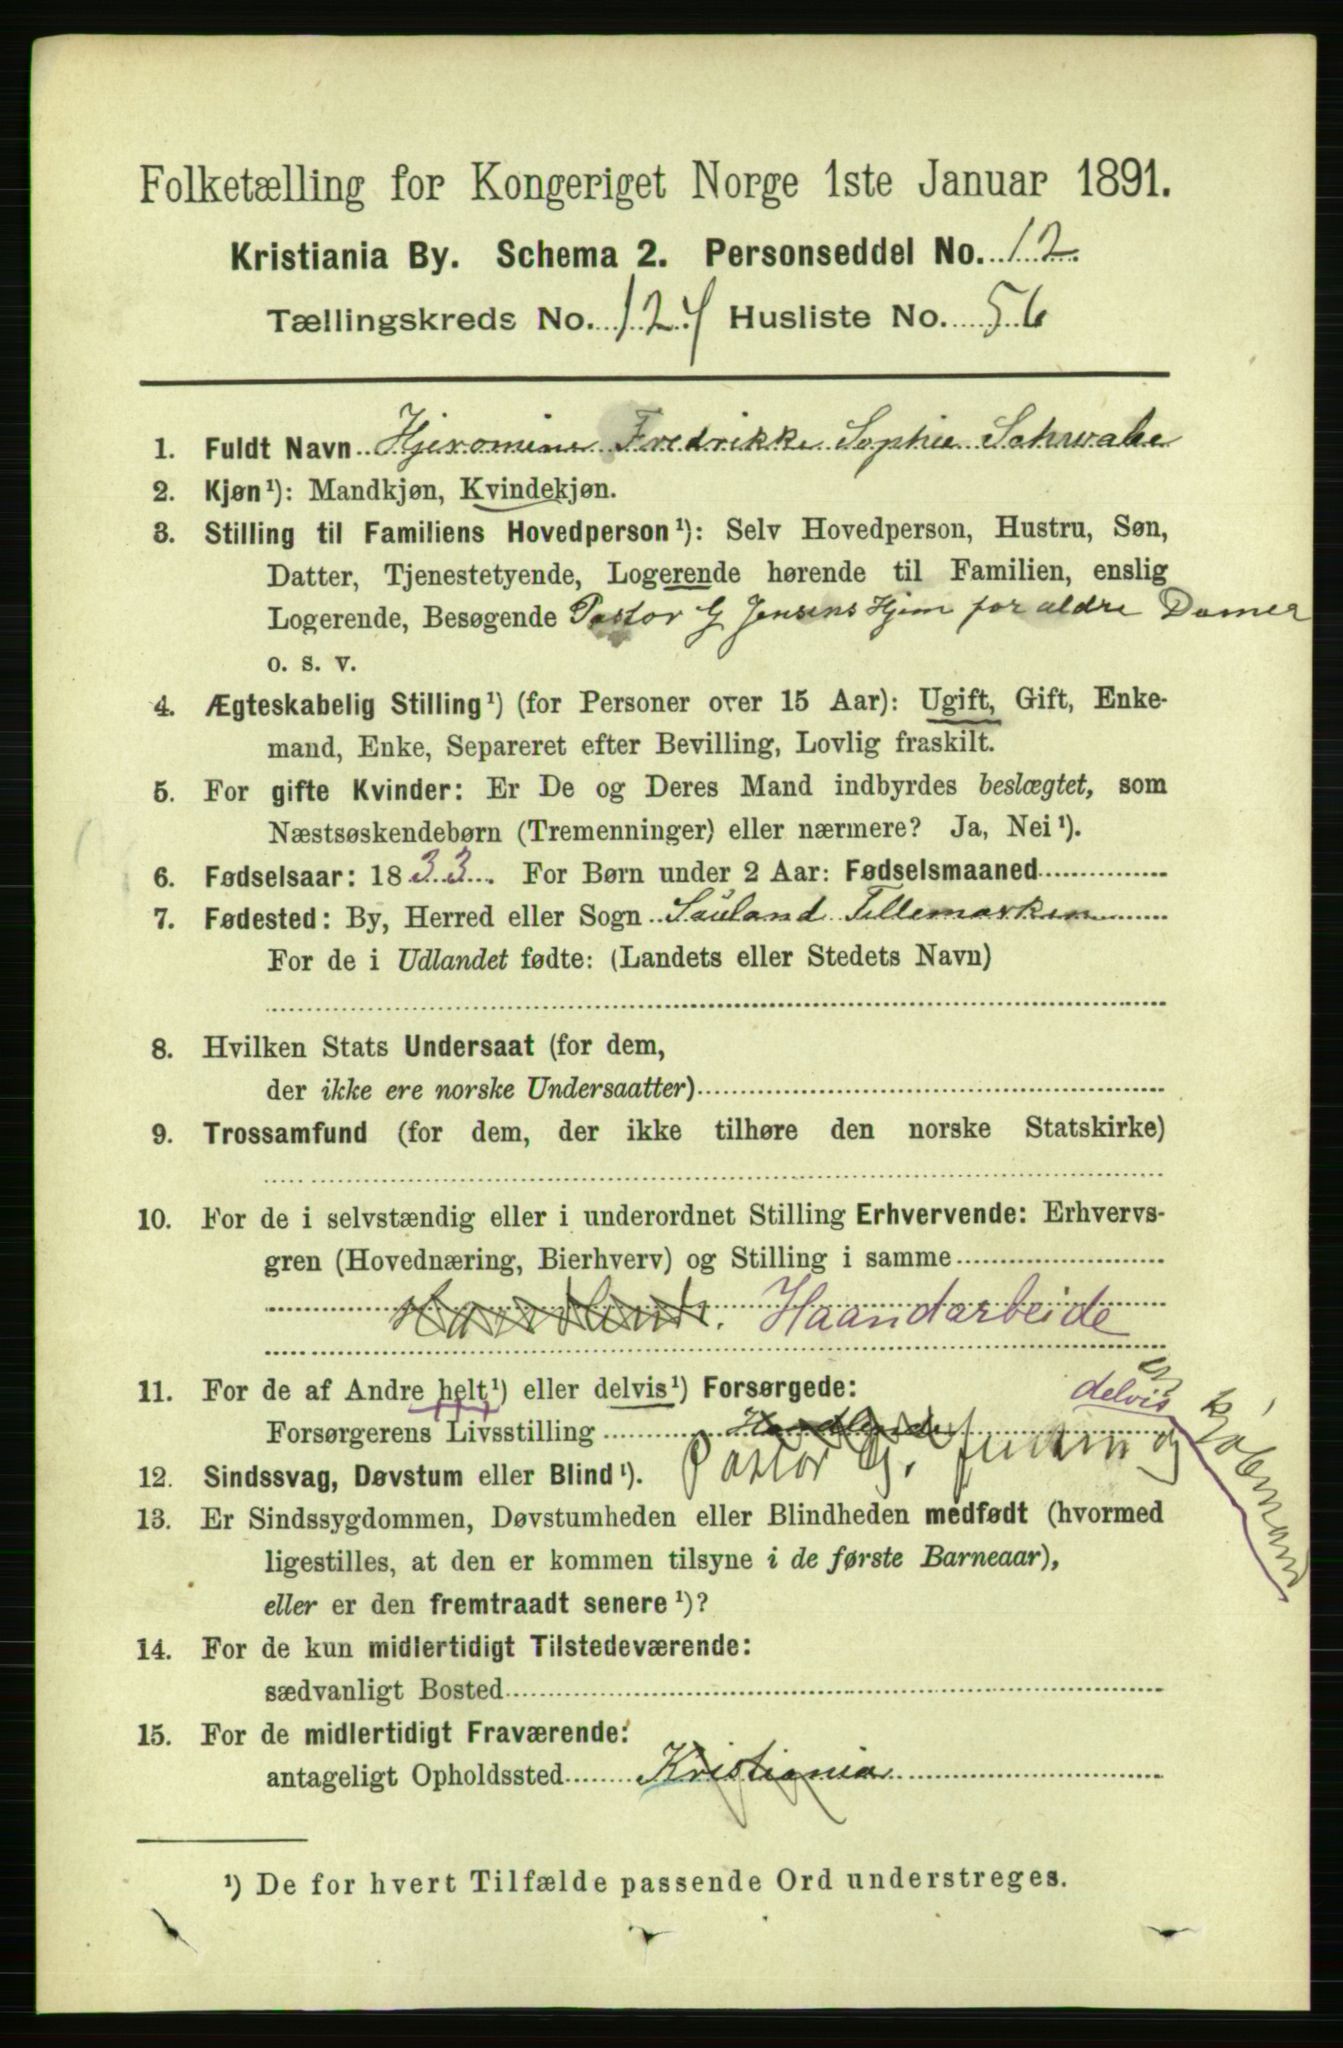 Folketælling for Kongeriget Norge 1ste Januar 1891.
Kristiania By. Schema 2. Personseddel No. 12.
Tællingskreds No. 124 Husliste No. 56
1. Fuldt Navn Hjeromine Fredrikke Sophie Schwabe
2. Kjøn¹): Mandkjøn, Kvindekjøn.
3. Stilling til Familiens Hovedperson¹): Selv Hovedperson, Hustru, Søn,
Datter, Tjenestetyende, Logerende hørende til Familien, enslig
Logerende, Besøgende Pastor G Jensens Hjem for ældre Damer
o. s. v.
4. Ægteskabelig Stilling¹) (for Personer over 15 Aar): Ugift, Gift, Enke-
mand, Enke, Separeret efter Bevilling, Lovlig fraskilt.
5. For gifte Kvinder: Er De og Deres Mand indbyrdes beslægtet, som
Næstsøskendebørn (Tremenninger) eller nærmere? Ja, Nei¹).
6. Fødselsaar: 1833. For Børn under 2 Aar: Fødselsmaaned
7. Fødested: By, Herred eller Sogn Sauland Tellemarken
For de i Udlandet fødte: (Landets eller Stedets Navn)
8. Hvilken Stats Undersaat (for dem,
der ikke ere norske Undersaatter)
9. Trossamfund (for dem, der ikke tilhøre den norske Statskirke)
10. For de i selvstændig eller i underordnet Stilling Erhvervende: Erhvervs-
gren (Hovednæring, Bierhverv) og Stilling i samme
Haandarbeide
11. For de af Andre helt¹) eller delvis¹) Forsørgede: delvis
Forsørgerens Livsstilling
Pastor G. Jensen og
en Kjøbmand
12. Sindssvag, Døvstum eller Blind¹).
13. Er Sindssygdommen, Døvstumheden eller Blindheden medfødt (hvormed
ligestilles, at den er kommen tilsyne i de første Barneaar),
eller er den fremtraadt senere¹)?
14. For de kun midlertidigt Tilstedeværende:
sædvanligt Bosted
15. For de midlertidigt Fraværende:
antageligt Opholdssted Kristiania
¹) De for hvert Tilfælde passende Ord understreges.